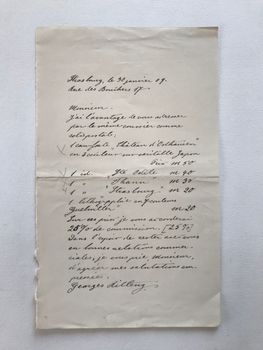 Strasbourg, le 30 janvier 09.
Rue des Bouchers 17.
Monsieur,
J'ai l'avantage de vous adresser
par le même courrier comme
colis postal:
1 eau forte "Château d'Ostheim"
en couleur sur véritable Japon
Prix M 50
1 id. "Ste Odile" M 40
1 " "Thann" M 30
1 " "Strasbourg" M 20
1 lithographie en couleurs
M 20
Sur ces prix je vous accorderai
25% de commission. [25%]
Dans l'espoir de rester avec vous
en bonnes relations commer-
ciales, je vous prie, Monsieur,
d'agréer mes salutations em-
pressées.
Georges Ritleng